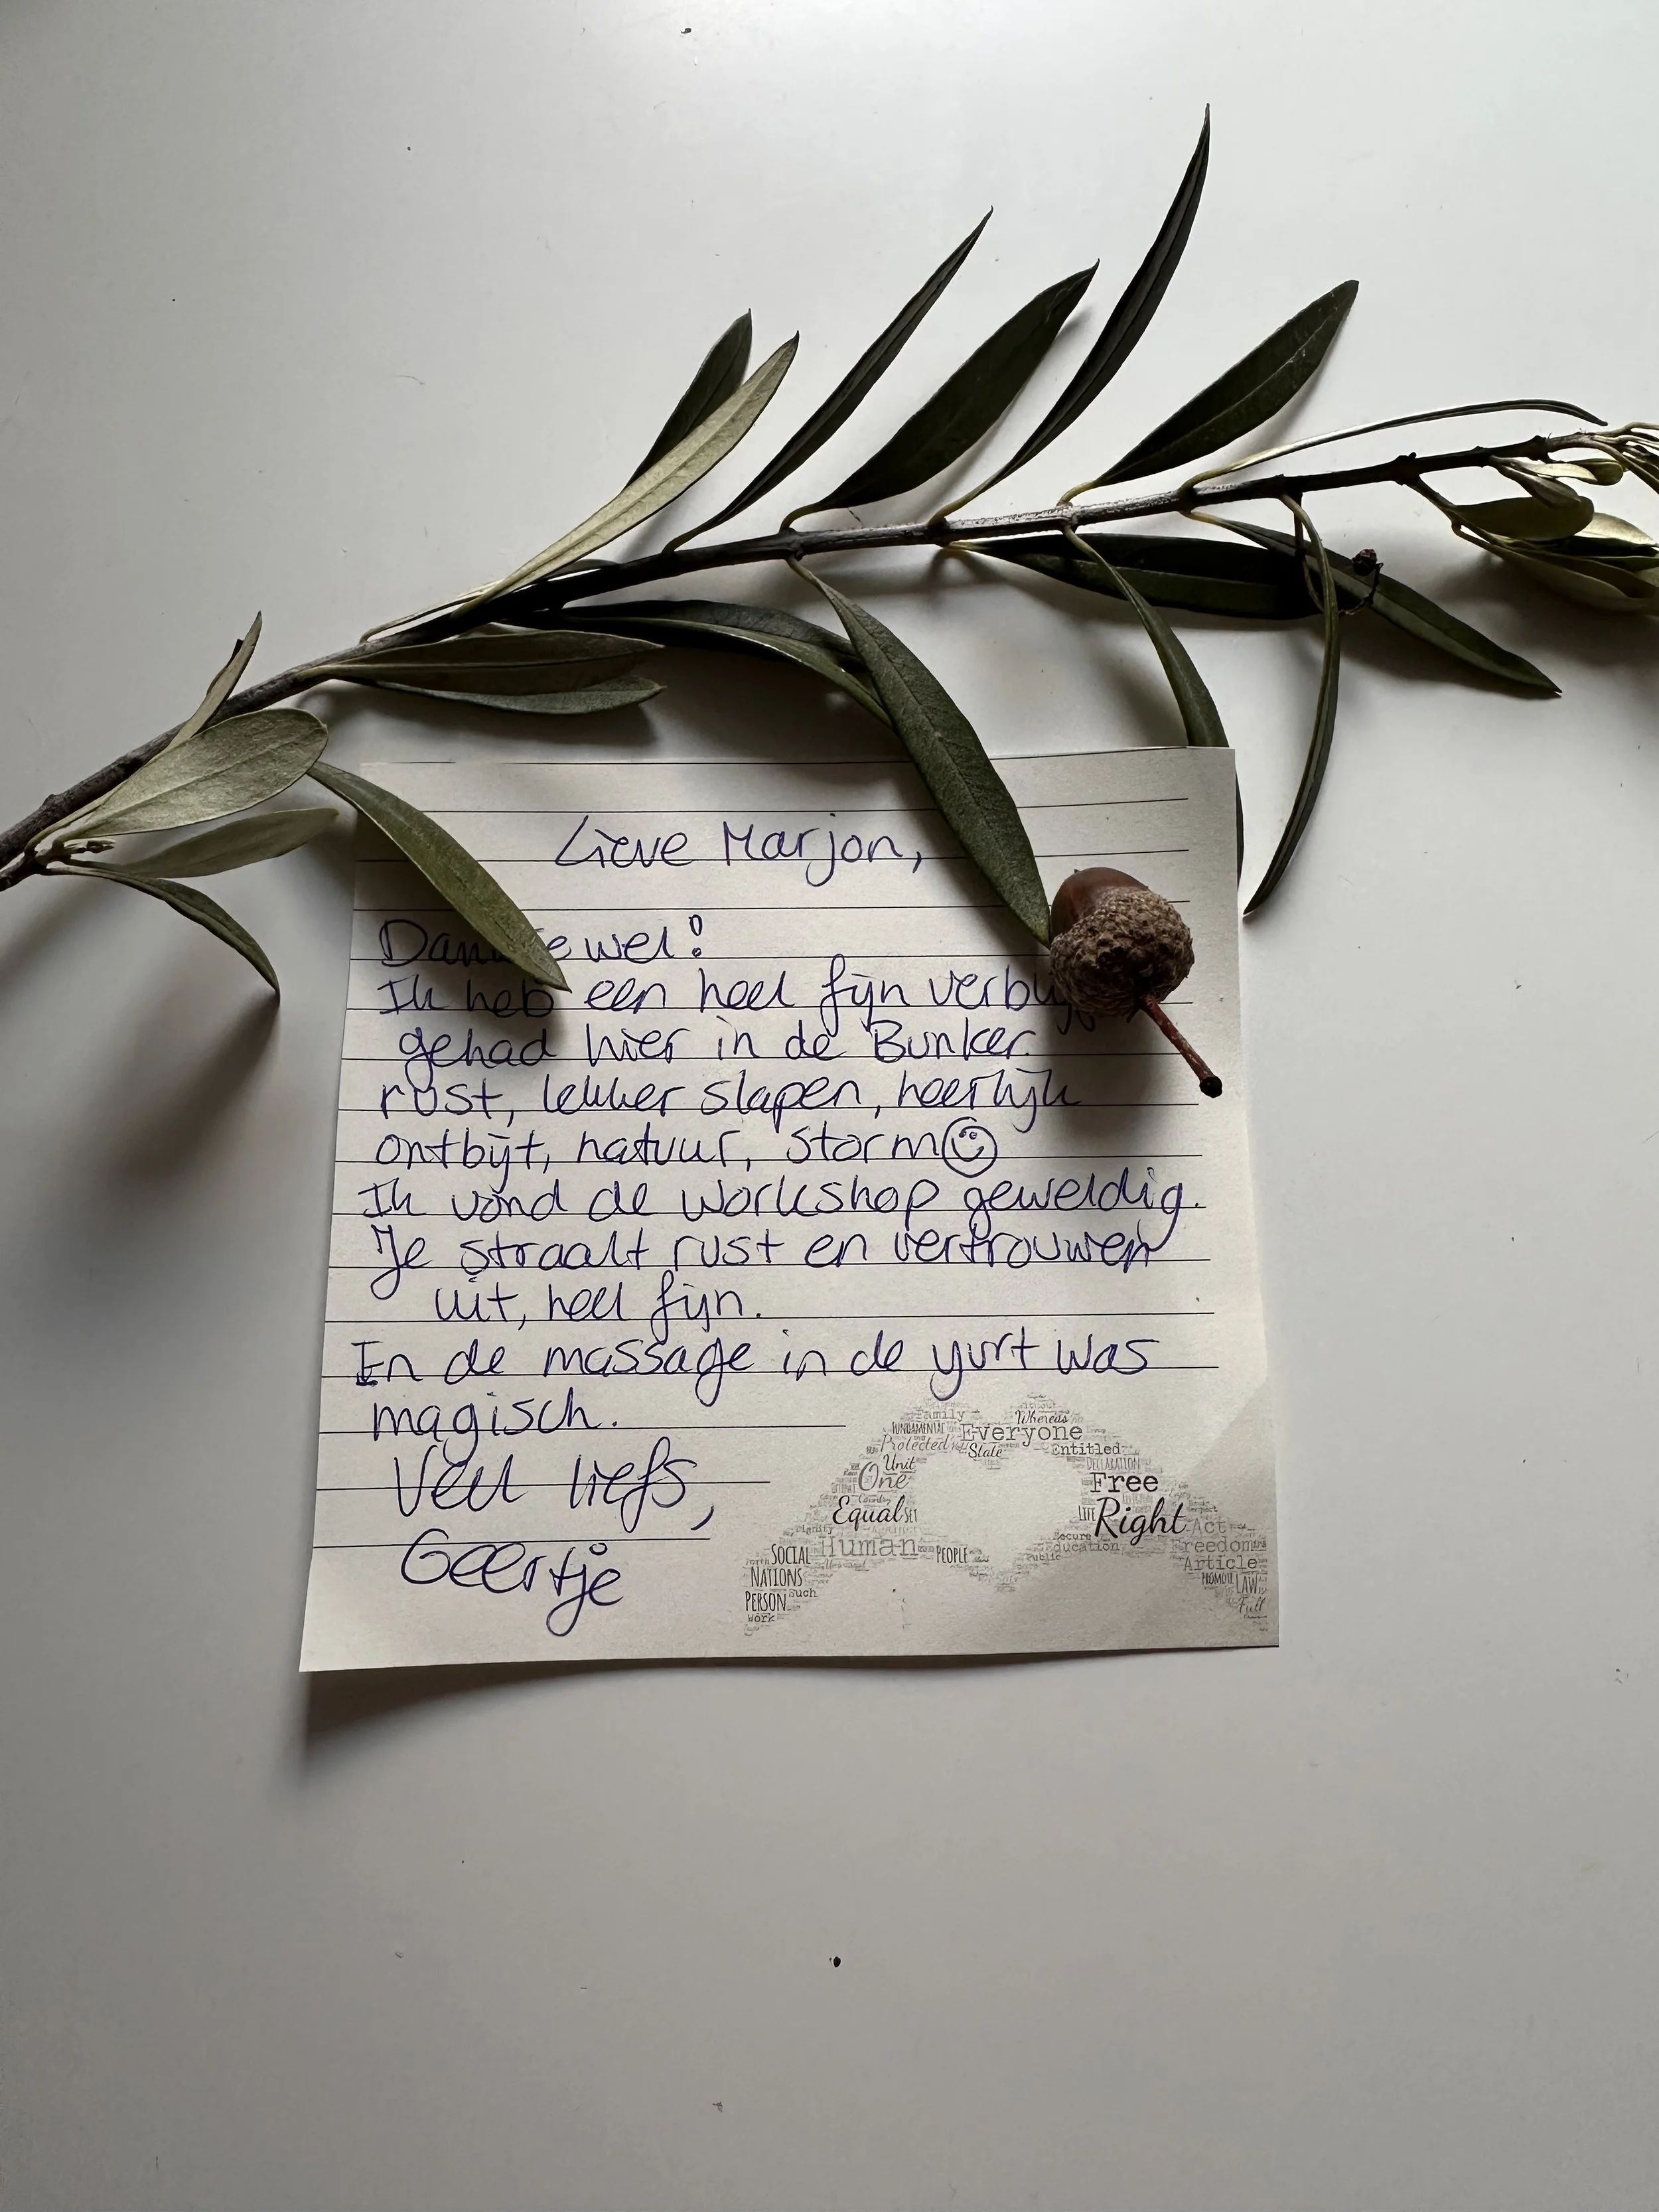 Lieve Marjon,
Dank je wel!
Ik heb een heel fijn verblijf
gehad hier in de Bunker.
rust, lekker slapen, heerlijk
ontbijt, natuur, storm
Ik vond de workshop geweldig.
Je straalt rust en vertrouwen
uit, heel fijn.
En de massage in de yurt was
magisch.
Veel liefs,
Geertje
Family Whereas
FUNDAMENTAL Everyone
Protected State Entitled
Unit DECLARATION
One Free
Equal SET LIFE Right Act
Dignity Secure
Human Education Freedom
SOCIAL PEOPLE Public Article
NATIONS PROMOTE LAW
PERSON such Full
Work